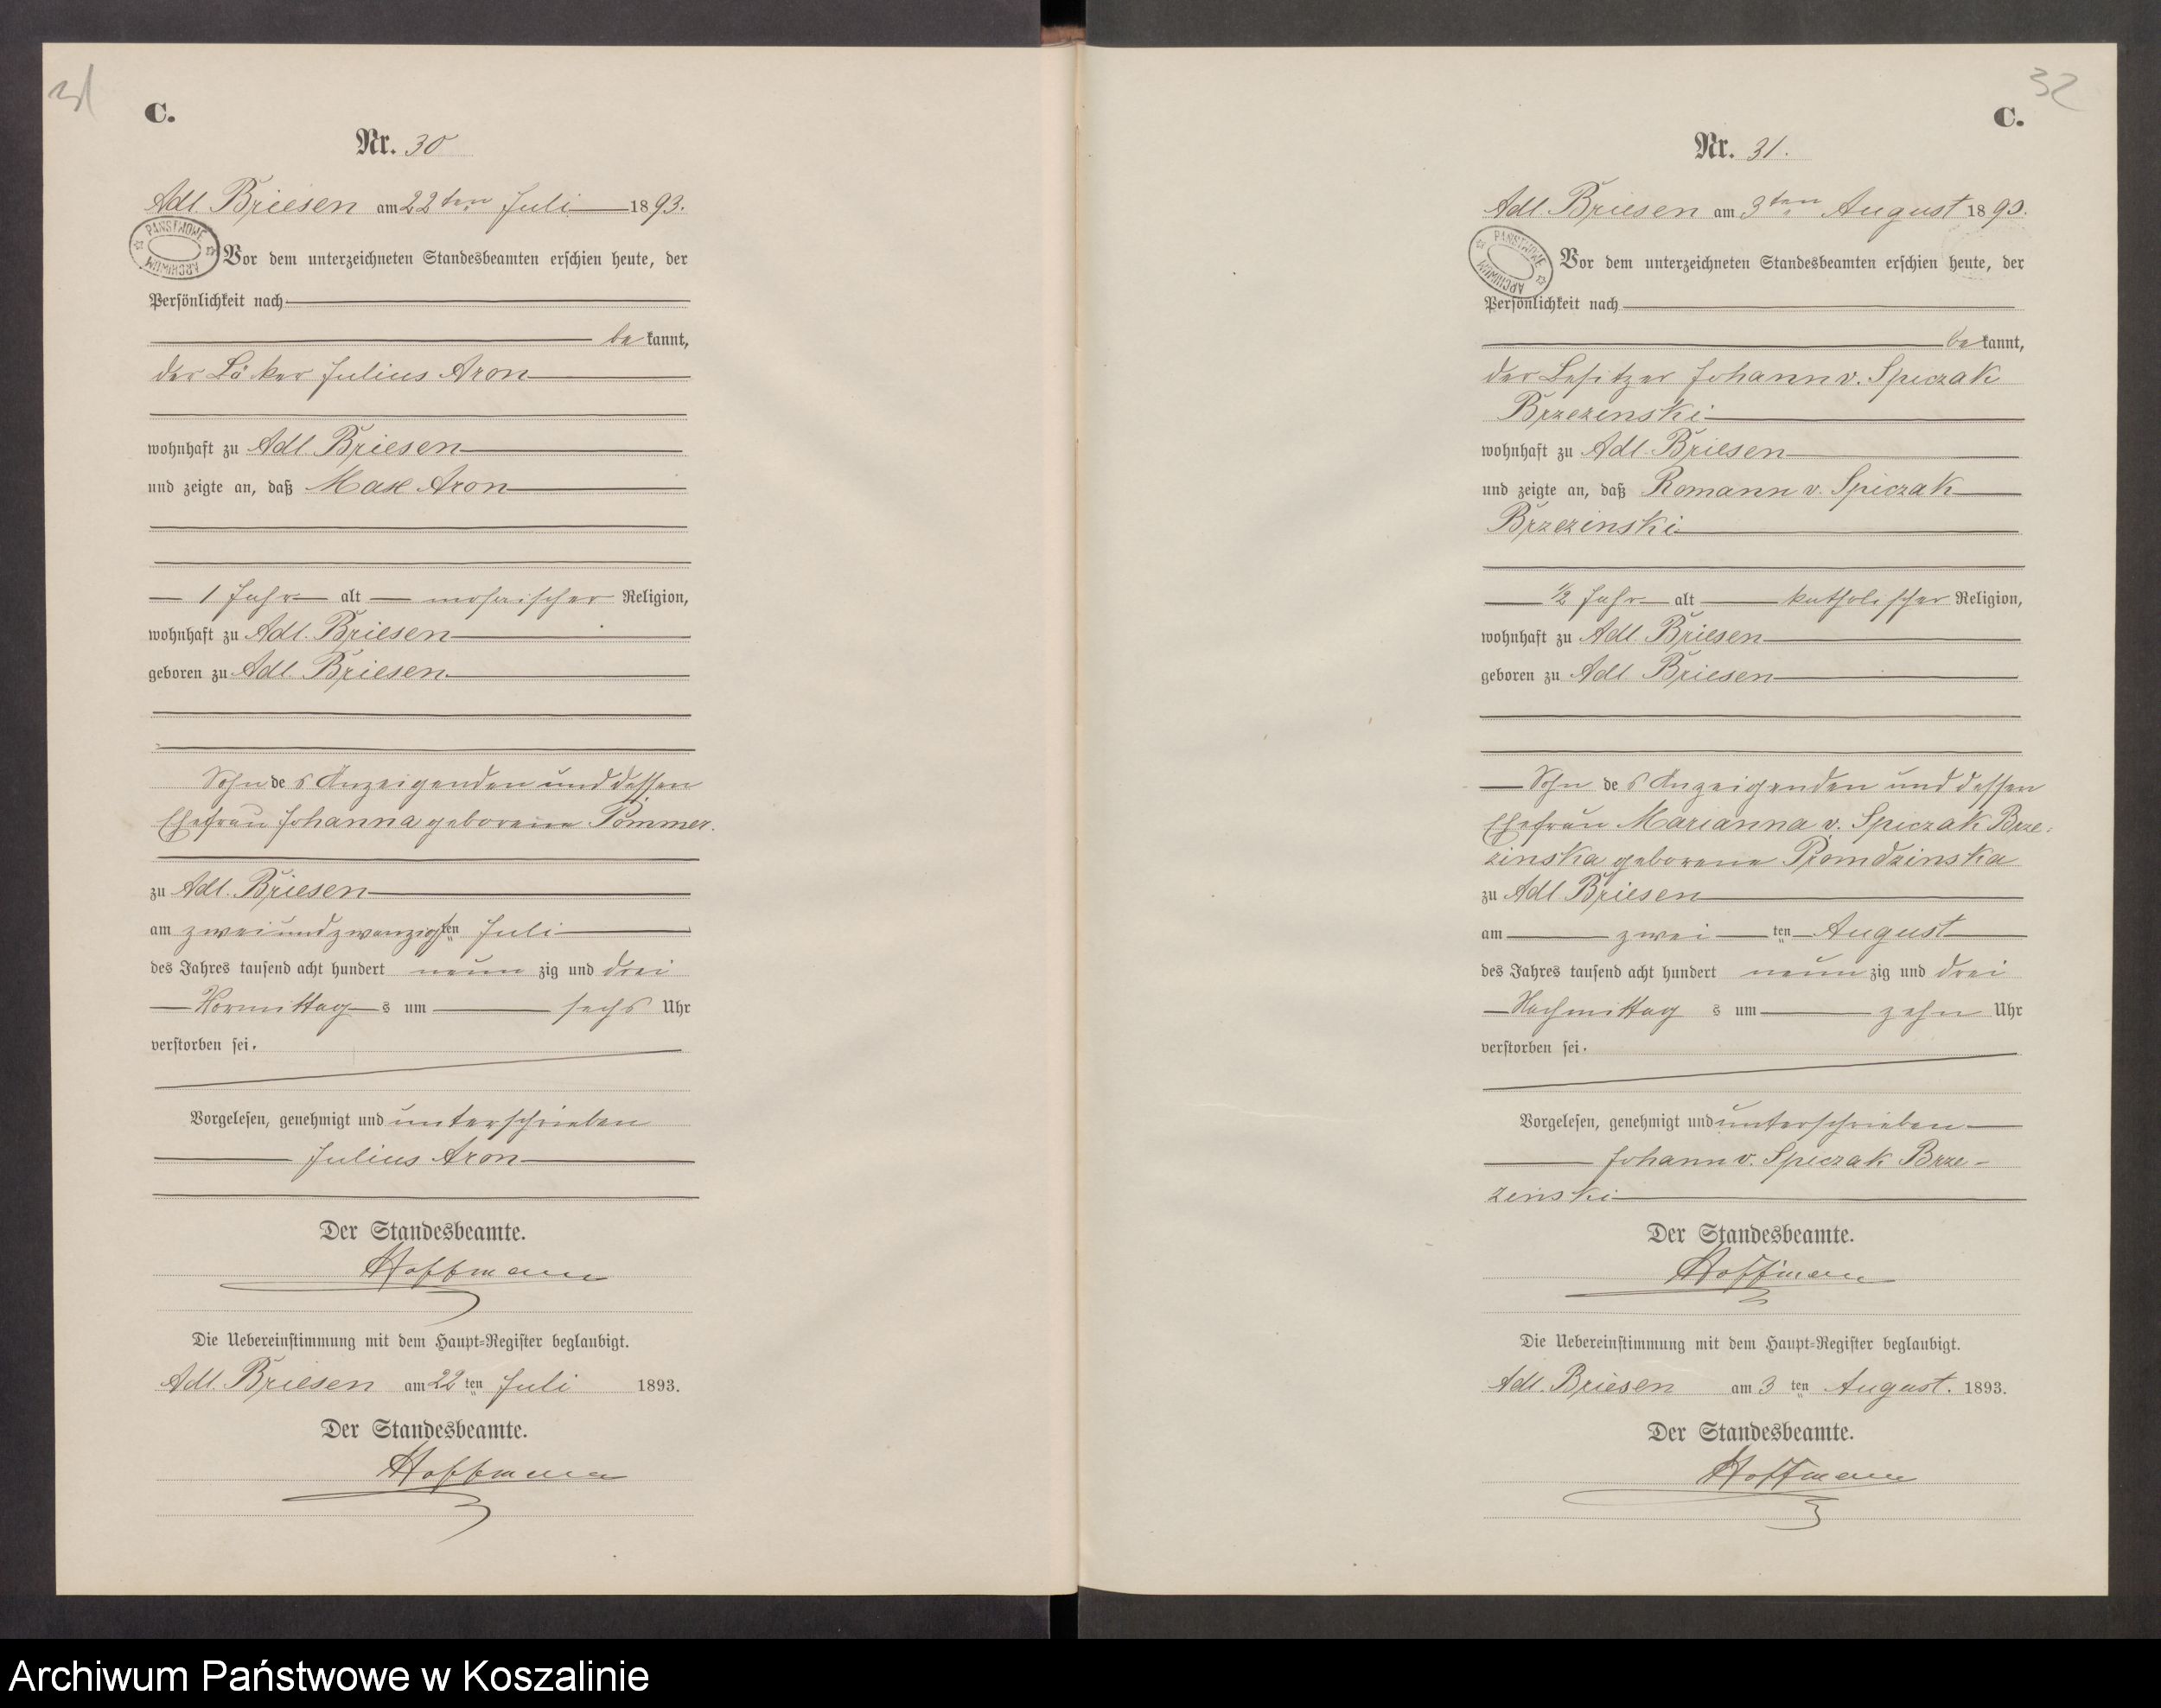 31
C.
Nr. 30
Adl. Briesen am 22ten Juli 1893.
PAŃSTWOWE ARCHIWUM
Vor dem unterzeichneten Standesbeamten erschien heute, der
Persönlichkeit nach
be kannt,
der Bäcker Julius Aron
wohnhaft zu Adl. Briesen
und zeigte an, daß Max Aron
1 Jahr alt mosaischer Religion,
wohnhaft zu Adl. Briesen
geboren zu Adl. Briesen
Sohn des Anzeigenden und dessen
Ehefrau Johanna geborene Pommer.
zu Adl. Briesen
am zweiundzwanzigsten Juli
des Jahres tausend acht hundert neun zig und drei
Vormittag s um sechs Uhr
verstorben sei.
Vorgelesen, genehmigt und unterschrieben
Julius Aron
Der Standesbeamte.
Hoffmann
Die Uebereinstimmung mit dem Haupt-Register beglaubigt.
Adl. Briesen am 22 ten Juli 1893.
Der Standesbeamte.
Hoffmann
32
C.
Nr. 31.
Adl. Briesen am 3ten August 1893.
PAŃSTWOWE ARCHIWUM
Vor dem unterzeichneten Standesbeamten erschien heute, der
Persönlichkeit nach
be kannt,
der Besitzer Johann v. Spiczak
Brzezinski
wohnhaft zu Adl. Briesen
und zeigte an, daß Romann v. Spiczak
Brzezinski
1/2 Jahr alt katholischer Religion,
wohnhaft zu Adl. Briesen
geboren zu Adl. Briesen
Sohn des Anzeigenden und dessen
Ehefrau Marianna v. Spiczak Brze-
zinska geborene Promdzinska
zu Adl. Briesen
am zwei ten August
des Jahres tausend acht hundert neun zig und drei
Nachmittag s um zehn Uhr
verstorben sei.
Vorgelesen, genehmigt und unterschrieben
Johann v. Spiczak Brze-
zinski
Der Standesbeamte.
Hoffmann
Die Uebereinstimmung mit dem Haupt-Register beglaubigt.
Adl. Briesen am 3 ten August. 1893.
Der Standesbeamte.
Hoffmann
Archiwum Państwowe w Koszalinie